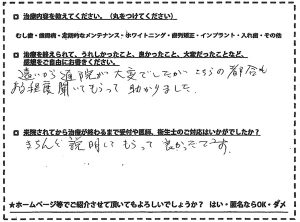 ■ 治療内容を教えてください。（丸をつけてください）
むし歯・歯周病・定期的なメンテナンス・ホワイトニング・歯列矯正・インプラント・入れ歯・その他
■ 治療を終えられて、うれしかったこと、良かったこと、大変だったことなど、
感想をご自由にお書きください。
遠いから通院が大変でしたがこちらの都合も
ある程度聞いてもらって助かりました。
■ 来院されてから治療が終わるまで受付や医師、衛生士のご対応はいかがでしたか？
きちんと説明してもらって良かったです。
★ホームページ等でご紹介させて頂いてもよろしいでしょうか？ はい・匿名ならOK・ダメ